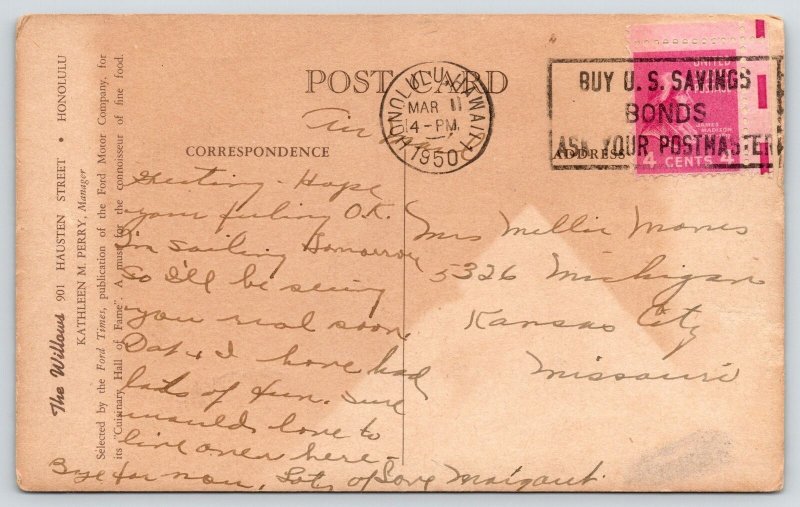 The Willows 901 HAUSTEN STREET • HONOLULU
KATHLEEN M. PERRY, Manager
Selected by the Ford Times, publication of the Ford Motor Company, for
its "Culinary Hall of Fame". A must for the connoisseur of fine food.
POST CARD
Air mail
CORRESPONDENCE
ADDRESS
HONOLULU, HAWAII
MAR 11
4-PM
1950
BUY U.S. SAVINGS
BONDS
ASK YOUR POSTMASTER
UNITED
JAMES
MADISON
4 CENTS 4
Greeting - Hope
your feeling O.K.
I'm sailing tomorrow
So I'll be seeing
you real soon
Dat & I have had
lots of fun. sure
would love to
live over here -
Bye for now, Lots of Love Margaret.
Mrs Mellie Mones
5326 Michigan
Kansas City
Missouri